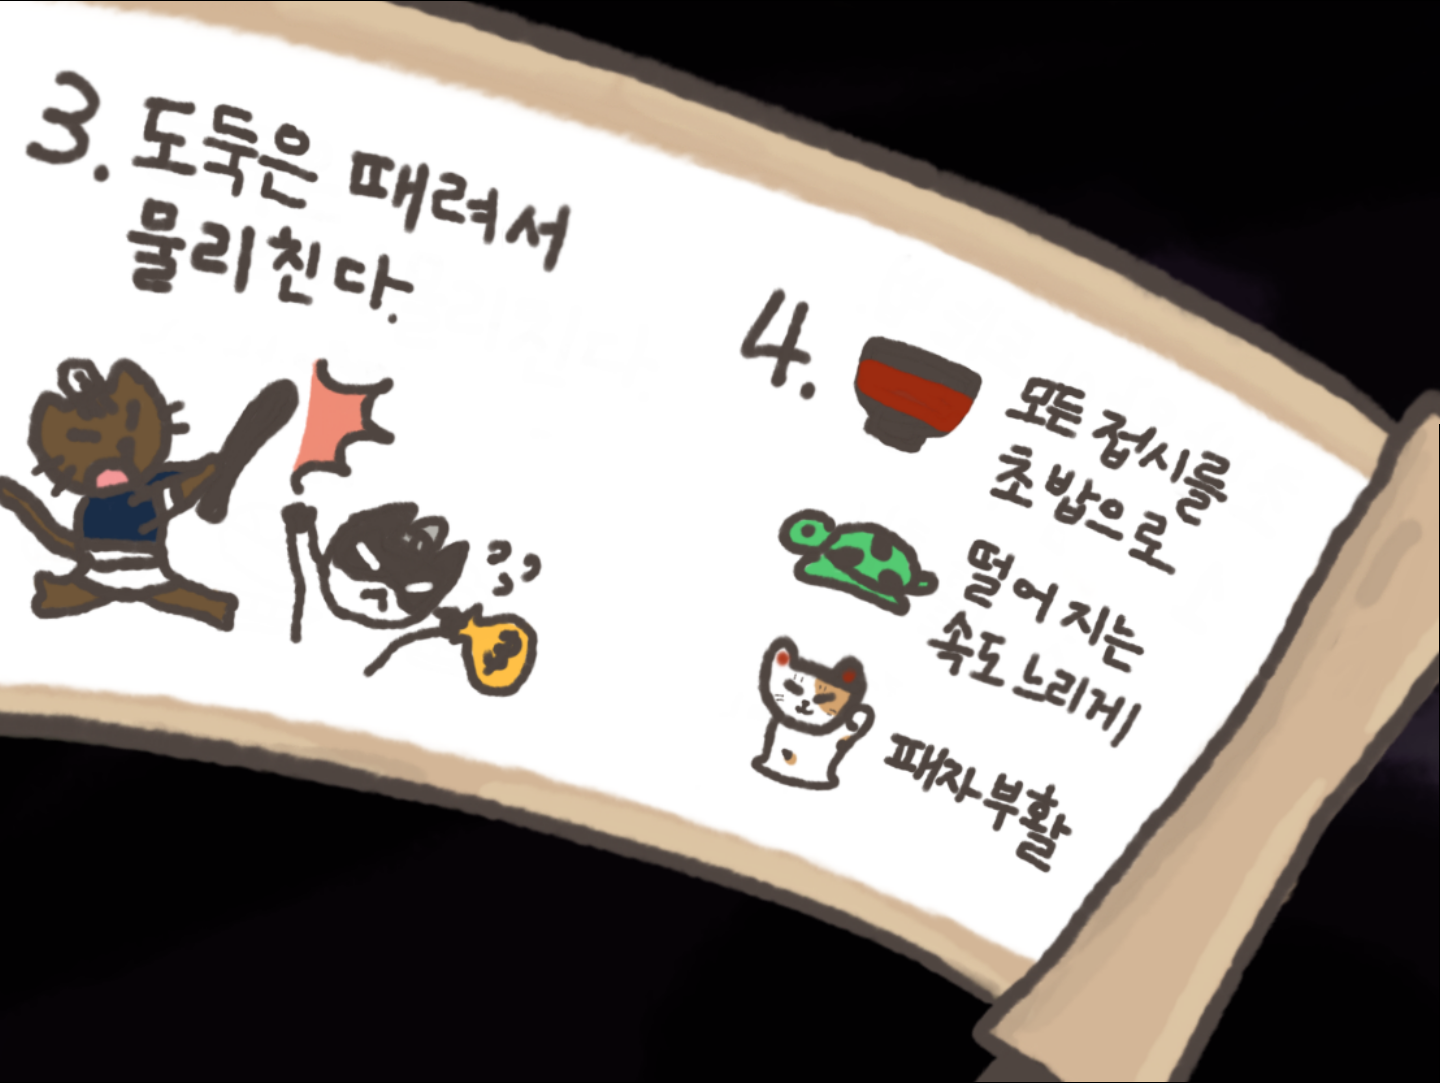 3. 도둑은 때려서
물리친다.
4. 모든 접시를
초밥으로
떨어지는
속도 느리게
패자부활